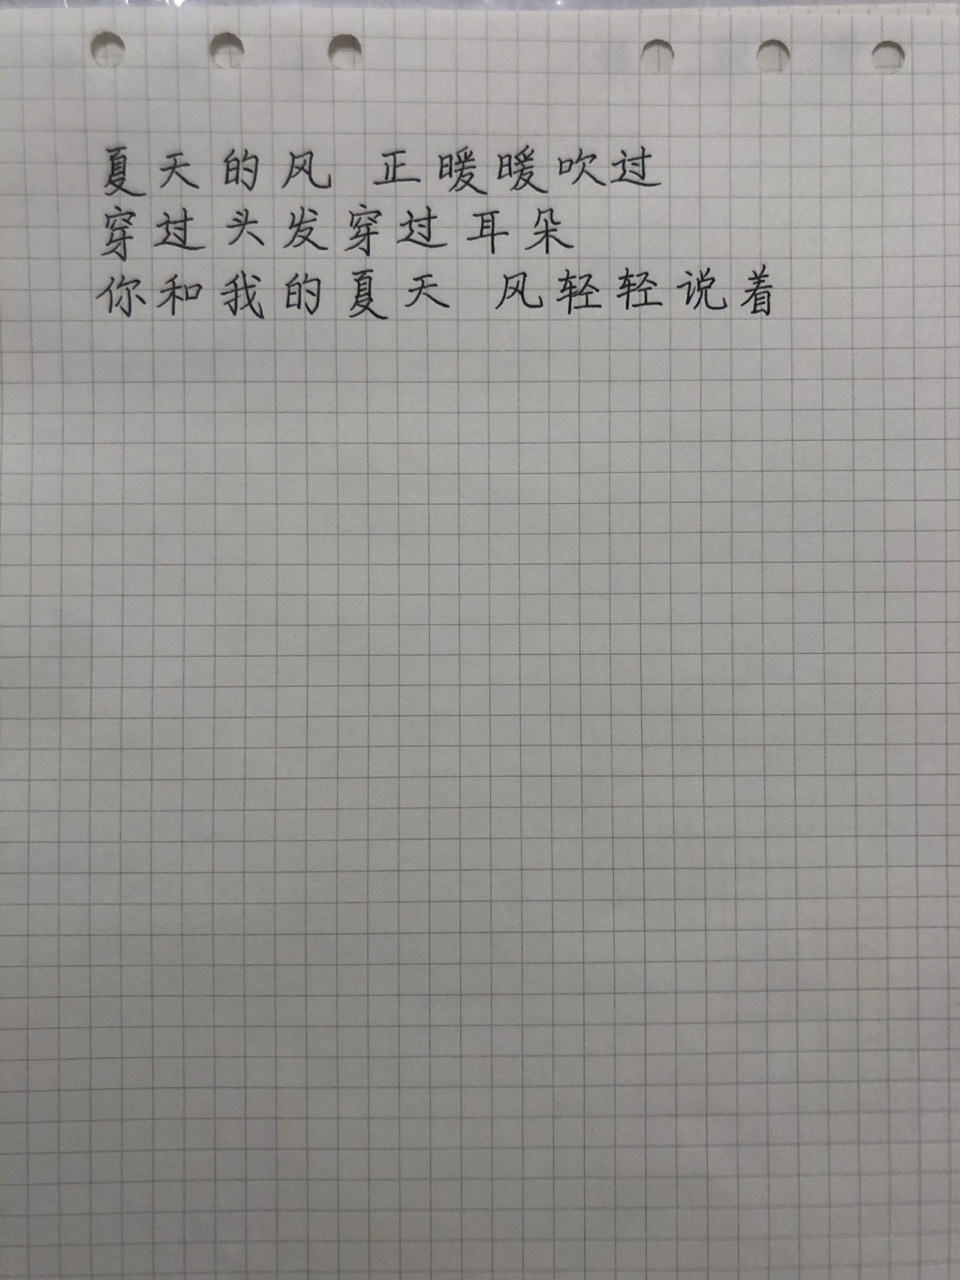 夏天的风 正暖暖吹过
穿过头发穿过耳朵
你和我的夏天 风轻轻说着